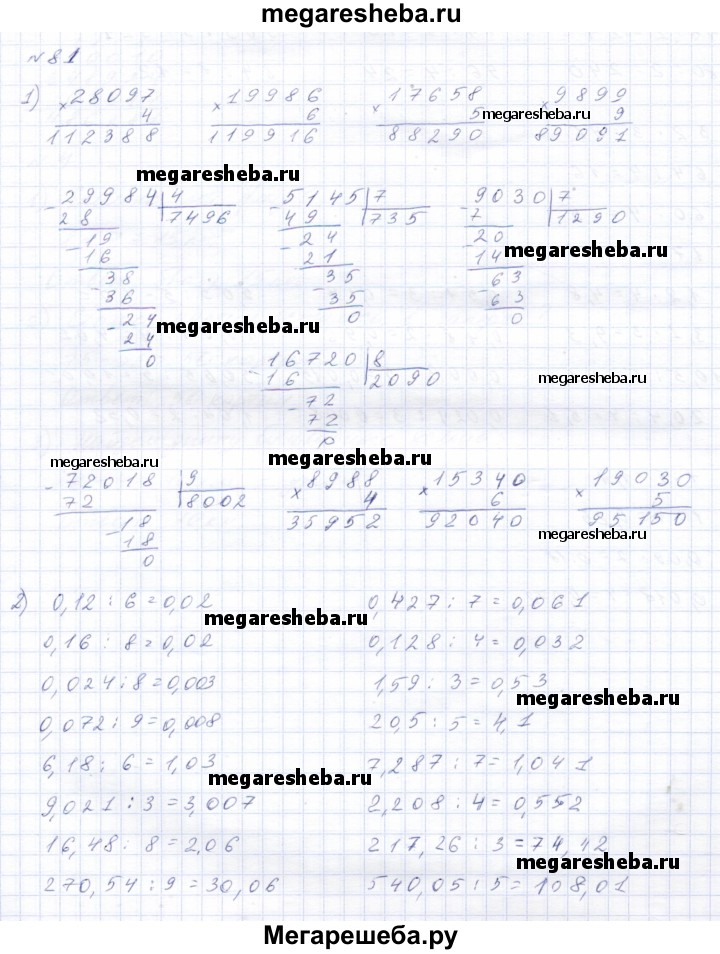 megaresheba.ru
№ 81
1) × 28097 × 19986 × 17658 × 9899
4 6 5 megaresheba.ru 9
112388 119916 88290 89091
megaresheba.ru
- 29984 | 4 - 5145 | 7 - 9030 | 7
28 | 7496 49 | 735 7 | 1290
- 19 - 24 - 20
16 21 - 14 megaresheba.ru
- 38 - 35 - 63
36 35 63
- 24 0 0
24 megaresheba.ru
0
- 16720 | 8
16 | 2090 megaresheba.ru
- 72
72
0
megaresheba.ru megaresheba.ru
- 72018 | 9 × 8988 × 15340 × 19030
72 | 8002 4 6 5
- 18 35952 92040 95150
18 megaresheba.ru
0
2) 0,12 : 6 = 0,02 0,427 : 7 = 0,061
megaresheba.ru
0,16 : 8 = 0,02 0,128 : 4 = 0,032
0,024 : 8 = 0,003 1,59 : 3 = 0,53
megaresheba.ru
0,072 : 9 = 0,008 20,5 : 5 = 4,1
6,18 : 6 = 1,03 7,287 : 7 = 1,041
megaresheba.ru
9,021 : 3 = 3,007 2,208 : 4 = 0,552
16,48 : 8 = 2,06 217,26 : 3 = 74,42
megaresheba.ru
270,54 : 9 = 30,06 540,05 : 5 = 108,01
Мегарешеба.ру